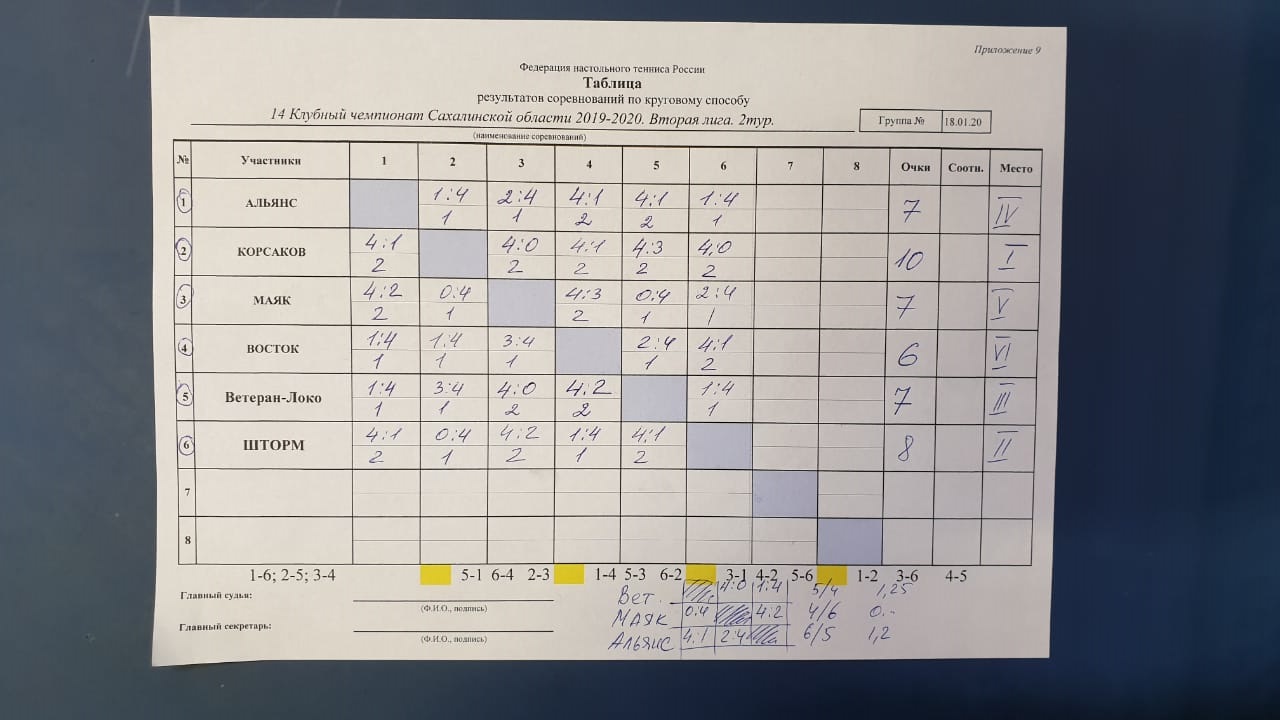 Приложение 9
Федерация настольного тенниса России
Таблица
результатов соревнований по круговому способу
14 Клубный чемпионат Сахалинской области 2019-2020. Вторая лига. 2тур.
Группа № 18.01.20
(наименование соревнований)
№ Участники 1 2 3 4 5 6 7 8 Очки Соотн. Место
1 АЛЬЯНС 1:4 2:4 4:1 4:1 1:4 7 IV
1 1 2 2 1
2 КОРСАКОВ 4:1 4:0 4:1 4:3 4:0 10 I
2 2 2 2 2
3 МАЯК 4:2 0:4 4:3 0:4 2:4 7 V
2 1 2 1 1
4 ВОСТОК 1:4 1:4 3:4 2:4 4:1 6 VI
1 1 1 1 2
5 Ветеран-Локо 1:4 3:4 4:0 4:2 1:4 7 III
1 1 2 2 1
6 ШТОРМ 4:1 0:4 4:2 1:4 4:1 8 II
2 1 2 1 2
7
8
1-6; 2-5; 3-4 5-1 6-4 2-3 1-4 5-3 6-2 3-1 4-2 5-6 1-2 3-6 4-5
Главный судья:
(Ф.И.О., подпись)
Главный секретарь:
(Ф.И.О., подпись)
Вет. 4:0 1:4 5/4 1,25
МАЯК 0:4 4:2 4/6 0,-
Альянс 4:1 2:4 6/5 1,2